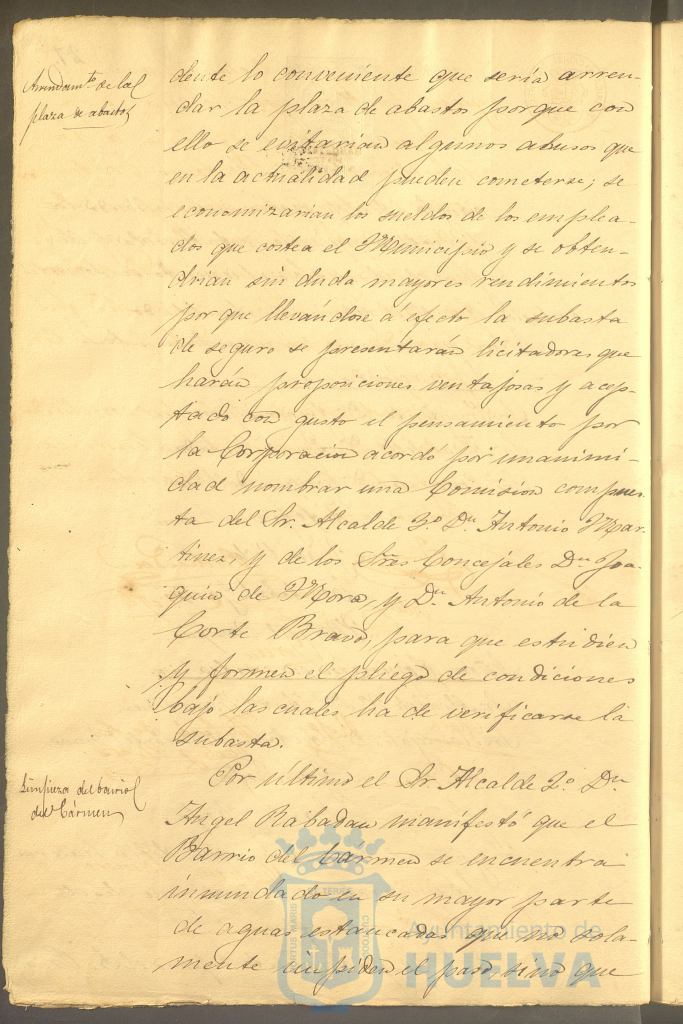 Arrendamto. de la
plaza de abastos
dente lo conveniente que sería arren-
dar la plaza de abastos porque con
ello se evitarian algunos abusos que
en la actualidad pueden cometerse; se
economizarian los sueldos de los emplea-
dos que costea el Municipio y se obten-
drian sin duda mayores rendimientos
porque llevandose á efecto la subasta
de seguro se presentarán licitadores que
harán proposiciones ventajosas y acep-
tado con gusto el pensamiento por
la Corporacion acordó por unanimi-
dad nombrar una Comision compues-
ta del Sr. Alcalde 3º Dn. Antonio Mar-
tinez, y de los Sres Concejales Dn. Joa-
quin de Mora, y Dn. Antonio de la
Corte Bravo, para que estudien
y formen el pliego de condiciones
bajo las cuales ha de verificarse la
subasta.
Limpieza del barrio
del Cármen
Por ultimo el Sr. Alcalde 2º. Dn.
Angel Rabadan manifestó que el
Barrio del Cármen se encuentra
inundado en su mayor parte
de aguas estancadas que no sola-
mente impiden el paso, sino que
Ayuntamiento de
HUELVA